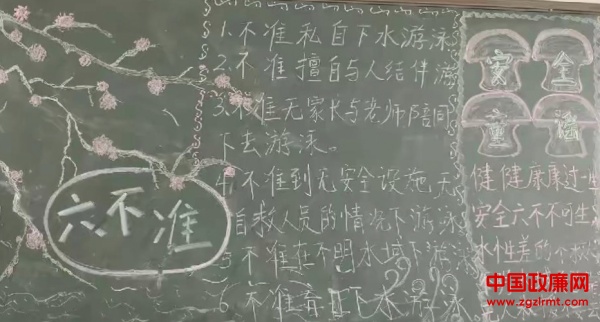 六不准
1.不准私自下水游泳
2.不准擅自与人结伴游
3.不准无家长与老师陪同
下去游泳。
4.不准到无安全设施无
自救人员的情况下游泳
5不准在不明水域下
6不准
安全
童
健健康康过一生
安全六不不可
水性差的
中国政廉网
www.zgzlrmt.com